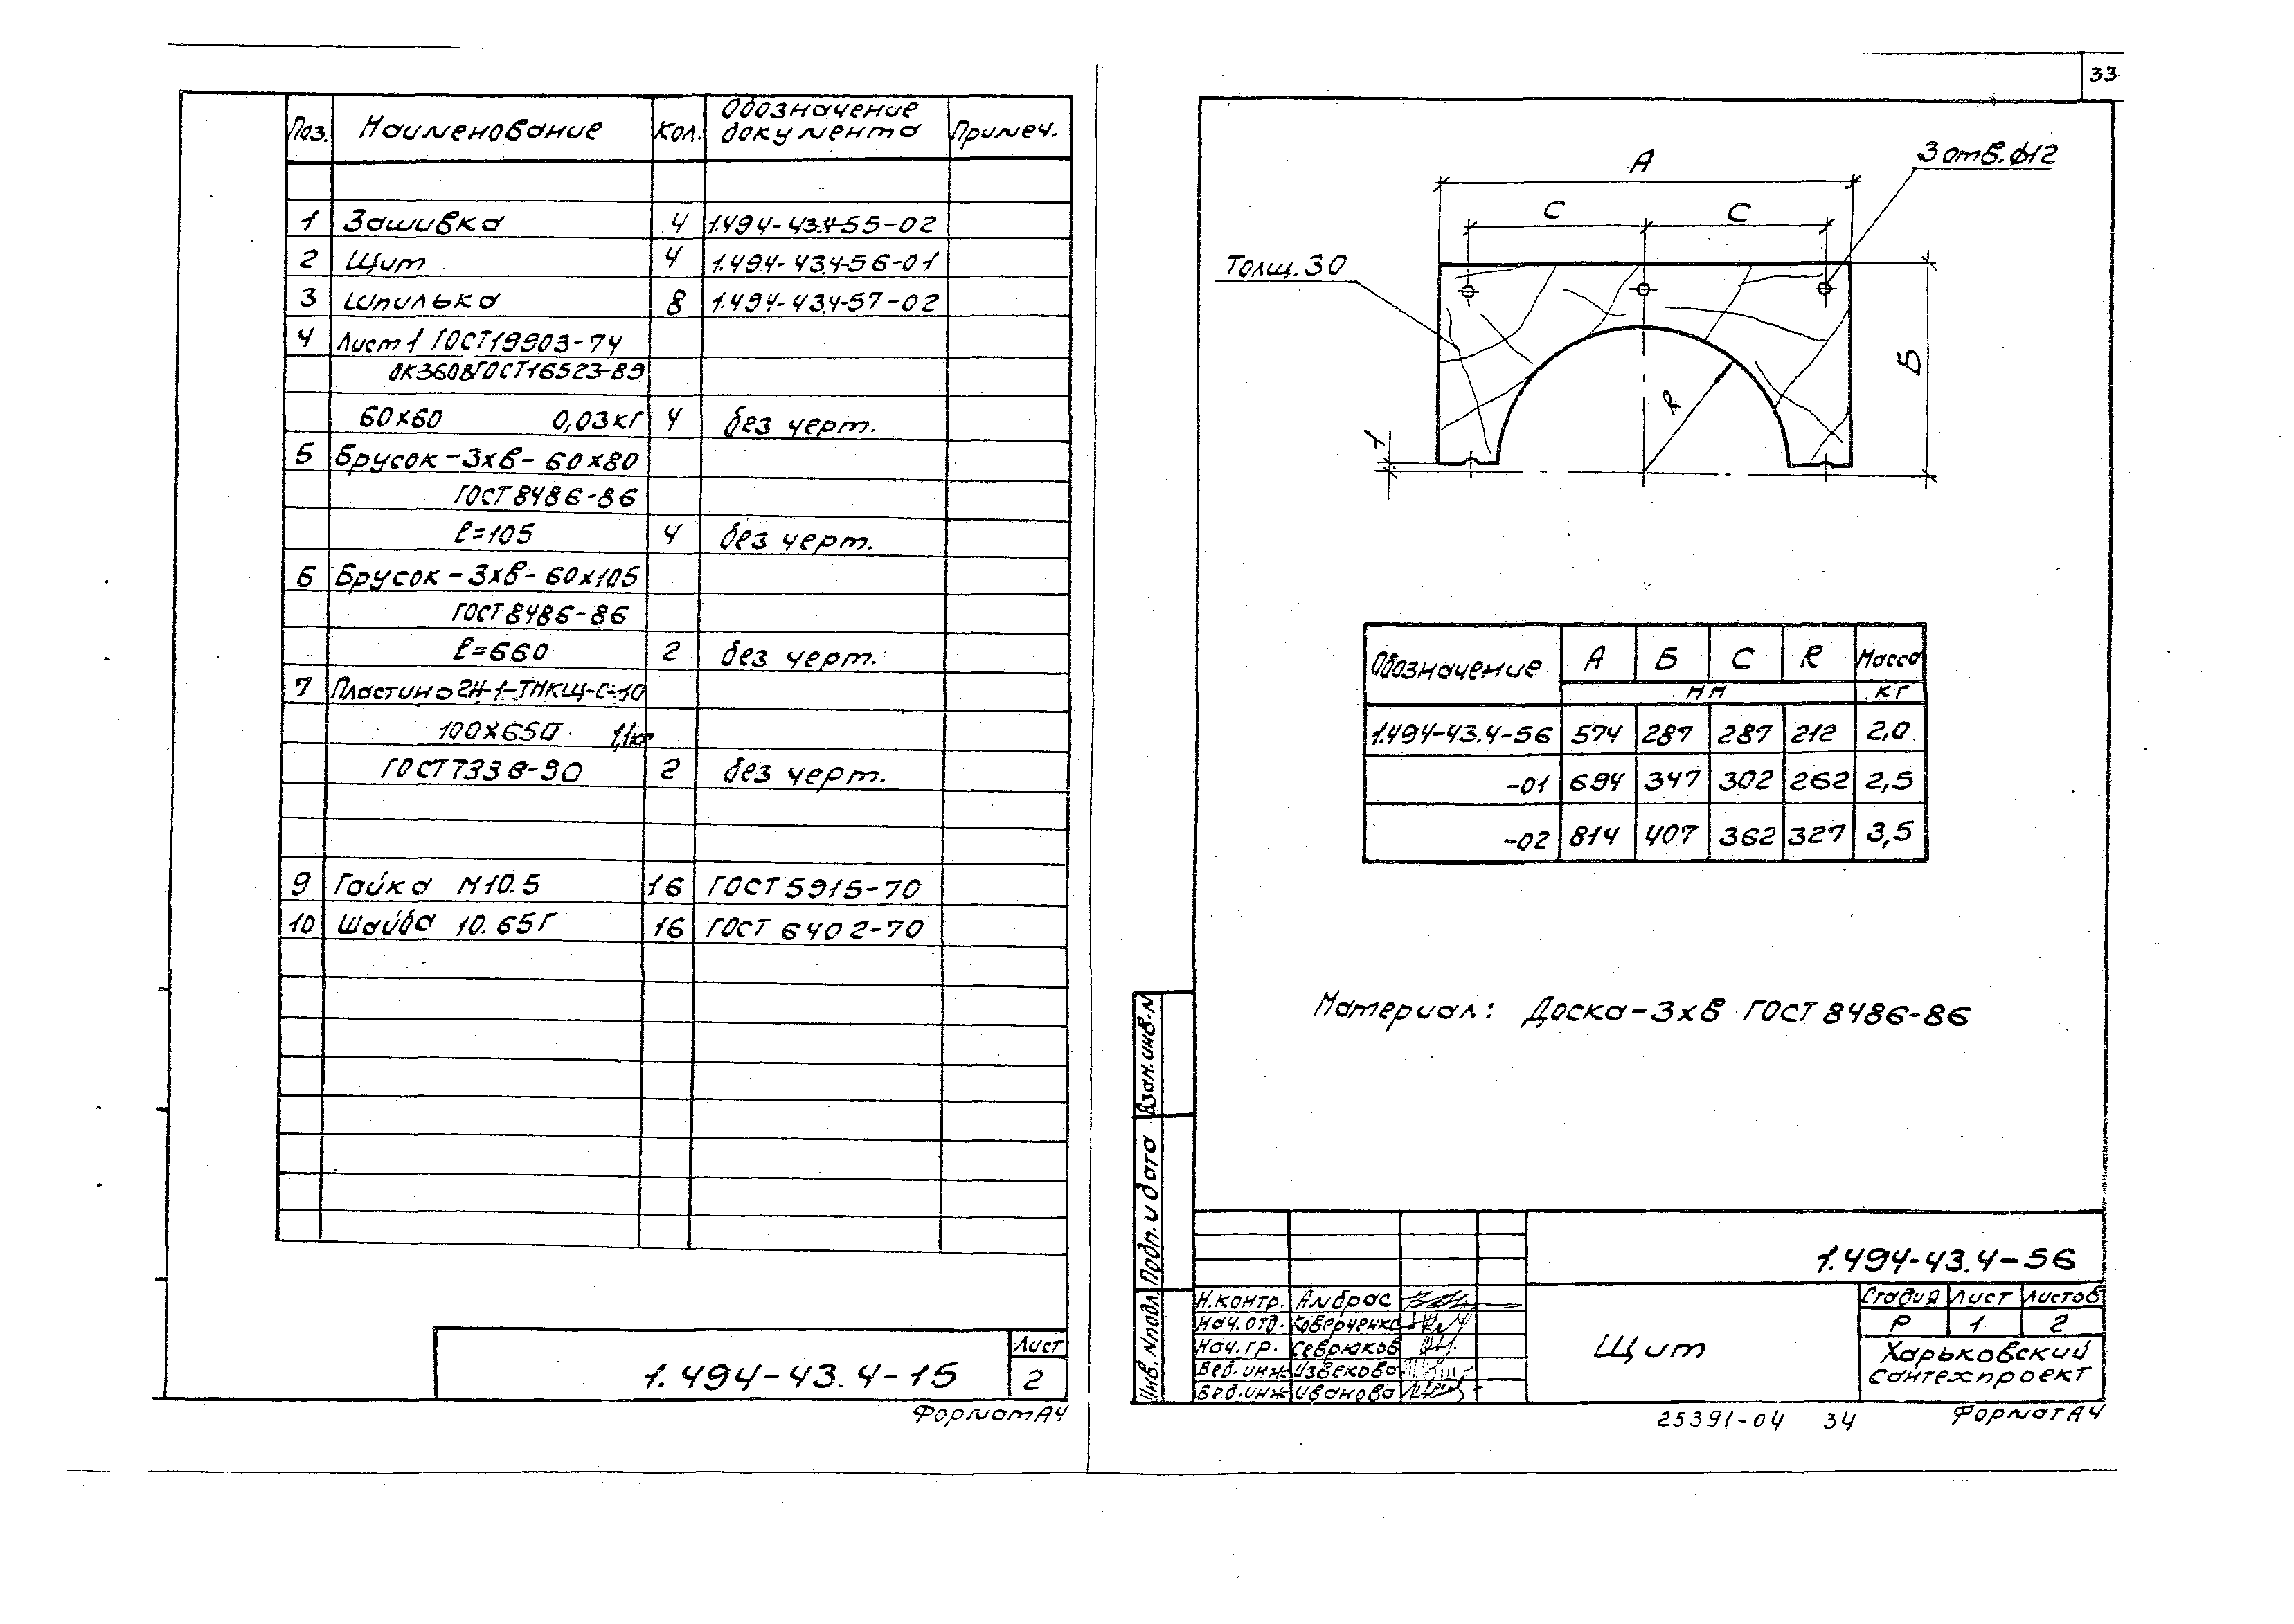 33
Поз. Наименование Кол. Обозначение документа Примеч.
1 Зашивка 4 1.494-43.4-55-02
2 Щит 4 1.494-43.4-56-01
3 Шпилька 8 1.494-43.4-57-02
4 Лист 1 ГОСТ19903-74
ОК360В ГОСТ16523-89
60х60 0,03кг 4 без черт.
5 Брусок-3хв-60х80
ГОСТ 8486-86
ℓ=105 4 без черт.
6 Брусок-3хв-60х105
ГОСТ 8486-86
ℓ=660 2 без черт.
7 Пластина 2Н-1-ТМКЩ-С-10
100х650 1,1кг
ГОСТ7338-90 2 без черт.
9 Гайка М10.5 16 ГОСТ 5915-70
10 Шайба 10.65Г 16 ГОСТ 6402-70
1.494-43.4-15
Лист
2
Формат А4
3 отв. ф12
А
С С
Толщ. 30
Б
R
1
Обозначение А Б С R Масса
мм кг
1.494-43.4-56 574 287 287 212 2,0
-01 694 347 302 262 2,5
-02 814 407 362 327 3,5
Материал: Доска-3хв ГОСТ 8486-86
Взам.инв.N
Подп. и дата
Инв. N подл.
1.494-43.4-56
Н.контр. Амбрас
Нач.отд. Коверченко
Нач.гр. Севрюков
Вед.инж Извекова
Вед.инж Иванова
Щит
Стадия Лист Листов
Р 1 2
Харьковский
Сантехпроект
25391-04 34
Формат А4